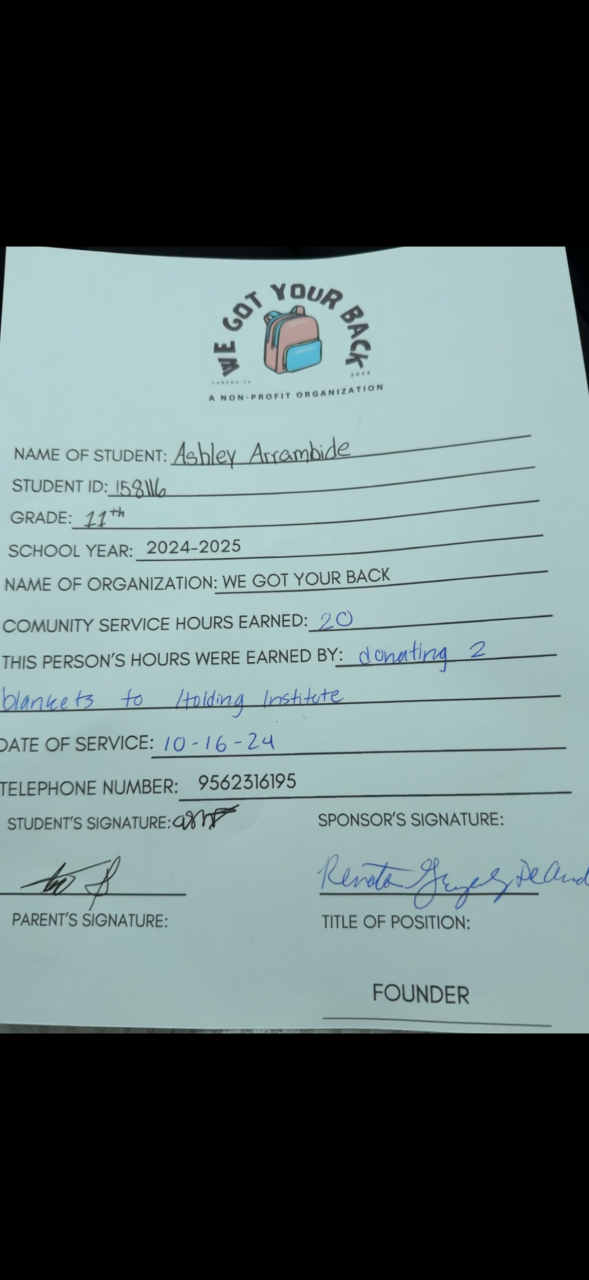 WE GOT YOUR BACK
LAREDO, TX 2023
A NON-PROFIT ORGANIZATION
NAME OF STUDENT: Ashley Arrambide
STUDENT ID: 158116
GRADE: 11th
SCHOOL YEAR: 2024-2025
NAME OF ORGANIZATION: WE GOT YOUR BACK
COMUNITY SERVICE HOURS EARNED: 20
THIS PERSON'S HOURS WERE EARNED BY: donating 2
blankets to Holding Institute
DATE OF SERVICE: 10-16-24
TELEPHONE NUMBER: 9562316195
STUDENT'S SIGNATURE: SPONSOR'S SIGNATURE:
Renata
PARENT'S SIGNATURE: TITLE OF POSITION:
FOUNDER